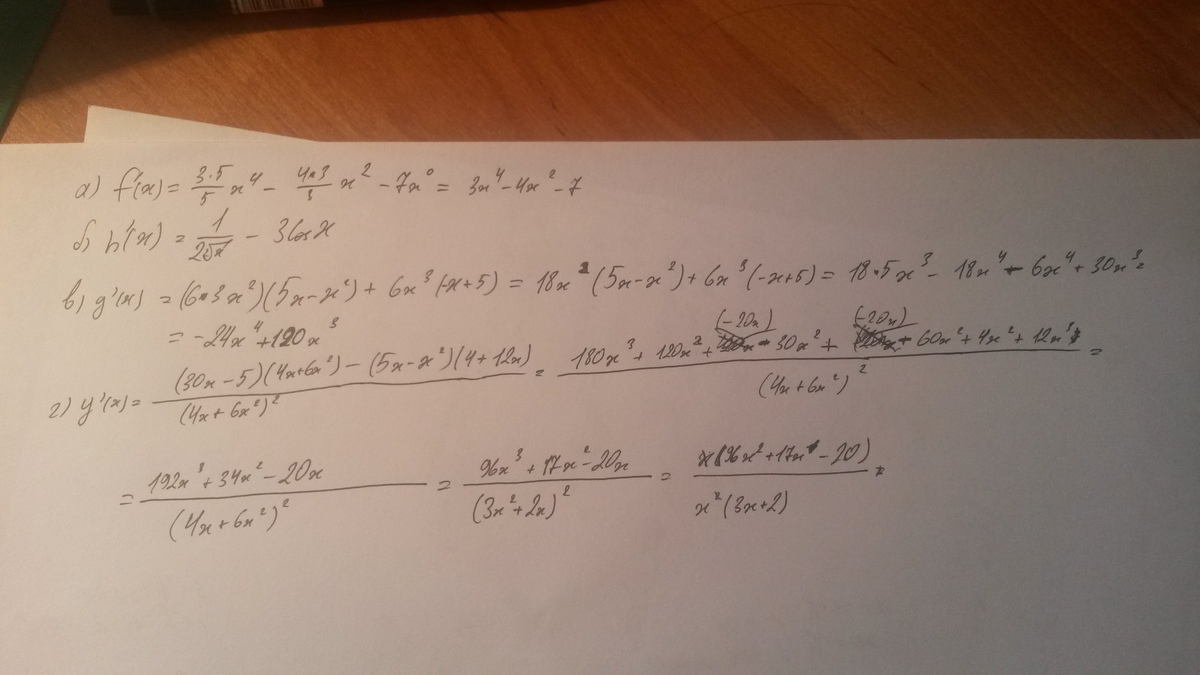 а) f'(x) = 3·5/5 x⁴ - 4·3/3 x² - 7x⁰ = 3x⁴ - 4x² - 7
б) h'(x) = 1/(2√x) - 3cos x
в) g'(x) = (6·3x²)(5x - x²) + 6x³(-x+5) = 18x²(5x - x²) + 6x³(-x+5) = 18·5x³ - 18x⁴ - 6x⁴ + 30x³ =
= -24x⁴ + 120x³
г) y'(x) = ((30x - 5)(4x+6x²) - (5x - x²)(4+12x))/(4x+6x²)² = (180x³ + 120x² + (-20x) - 30x² + (-20x) 60x² + 4x² + 12x³)/(4x+6x²)² =
= (192x³ + 34x² - 20x)/(4x+6x²)² = (96x³ + 17x² - 20x)/(3x²+2x)² = x(96x² + 17x - 20)/x²(3x+2)